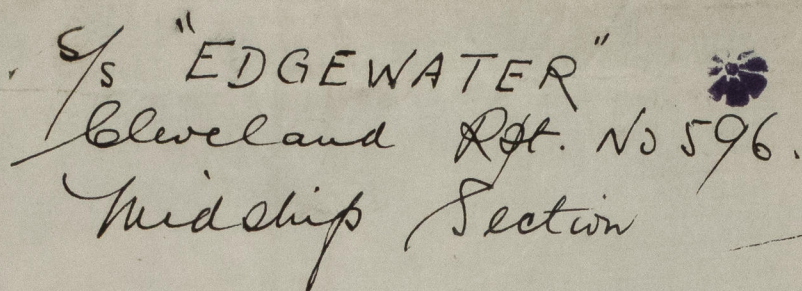 S/S "EDGEWATER"
Cleveland Rpt. No 596.
Midship Section